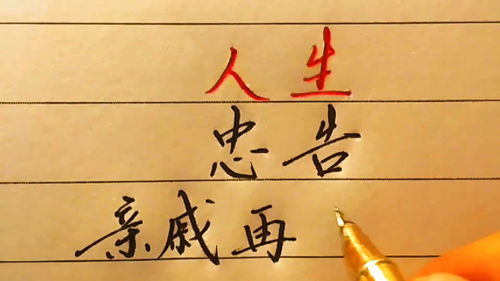 人生
忠告
亲戚再